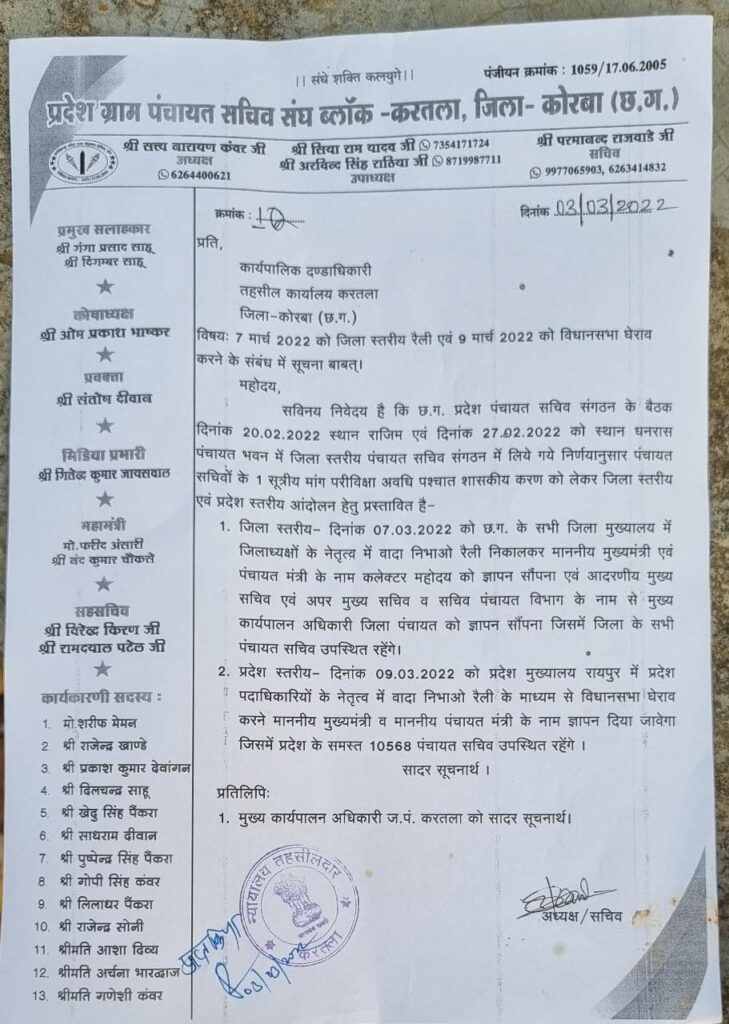 ।। संघे शक्ति कलयुगे।।
पंजीयन क्रमांक : 1059/17.06.2005
प्रदेश ग्राम पंचायत सचिव संघ ब्लॉक -करतला, जिला- कोरबा (छ.ग.)
श्री सत्य नारायण कंवर जी
अध्यक्ष
6264400621
श्री सिया राम यादव जी 7354171724
श्री अरविन्द सिंह राठिया जी 8719987711
उपाध्यक्ष
श्री परमानन्द राजवाडे जी
सचिव
9977065903, 6263414832
क्रमांक : 10
दिनांक 03/03/2022
प्रमुख सलाहकार
श्री गंगा प्रसाद साहू
श्री दिगम्बर साहू
कोषाध्यक्ष
श्री ओम प्रकाश भाष्कर
प्रवक्ता
श्री संतोष दीवान
मिडिया प्रभारी
श्री गितेन्द्र कुमार जायसवाल
महामंत्री
मो.फरीद अंसारी
श्री नंद कुमार चौकसे
सहसचिव
श्री विरेन्द्र किरण जी
श्री रामदयाल पटेल जी
कार्यकारणी सदस्य :
1. मो.शरीफ मेमन
2. श्री राजेन्द्र खाण्डे
3. श्री प्रकाश कुमार देवांगन
4. श्री दिलचन्द्र साहू
5. श्री खेदु सिंह पैंकरा
6. श्री साधराम दीवान
7. श्री पुष्पेन्द्र सिंह पैंकरा
8. श्री गोपी सिंह कंवर
9. श्री लिलाधर पैंकरा
10. श्री राजेन्द्र सोनी
11. श्रीमति आशा दिव्य
12. श्रीमति अर्चना भारद्वाज
13. श्रीमति गणेशी कंवर
प्रति,
कार्यपालिक दण्डाधिकारी
तहसील कार्यालय करतला
जिला-कोरबा (छ.ग.)
विषयः 7 मार्च 2022 को जिला स्तरीय रैली एवं 9 मार्च 2022 को विधानसभा घेराव
करने के संबंध में सूचना बाबत्।
महोदय,
सविनय निवेदय है कि छ.ग. प्रदेश पंचायत सचिव संगठन के बैठक
दिनांक 20.02.2022 स्थान राजिम एवं दिनांक 27.02.2022 को स्थान धनरास
पंचायत भवन में जिला स्तरीय पंचायत सचिव संगठन में लिये गये निर्णयानुसार पंचायत
सचिवों के 1 सूत्रीय मांग परीविक्षा अवधि पश्चात शासकीय करण को लेकर जिला स्तरीय
एवं प्रदेश स्तरीय आंदोलन हेतु प्रस्तावित है-
1. जिला स्तरीय- दिनांक 07.03.2022 को छ.ग. के सभी जिला मुख्यालय में
जिलाध्यक्षों के नेतृत्व में वादा निभाओ रैली निकालकर माननीय मुख्यमंत्री एवं
पंचायत मंत्री के नाम कलेक्टर महोदय को ज्ञापन सौंपना एवं आदरणीय मुख्य
सचिव एवं अपर मुख्य सचिव व सचिव पंचायत विभाग के नाम से मुख्य
कार्यपालन अधिकारी जिला पंचायत को ज्ञापन सौंपना जिसमें जिला के सभी
पंचायत सचिव उपस्थित रहेंगे।
2. प्रदेश स्तरीय- दिनांक 09.03.2022 को प्रदेश मुख्यालय रायपुर में प्रदेश
पदाधिकारियों के नेतृत्व में वादा निभाओ रैली के माध्यम से विधानसभा घेराव
करने माननीय मुख्यमंत्री व माननीय पंचायत मंत्री के नाम ज्ञापन दिया जावेगा
जिसमें प्रदेश के समस्त 10568 पंचायत सचिव उपस्थित रहेंगे ।
सादर सूचनार्थ ।
प्रतिलिपिः
1. मुख्य कार्यपालन अधिकारी ज.पं. करतला को सादर सूचनार्थ।
न्यायालय तहसीलदार
करतला
अध्यक्ष/सचिव